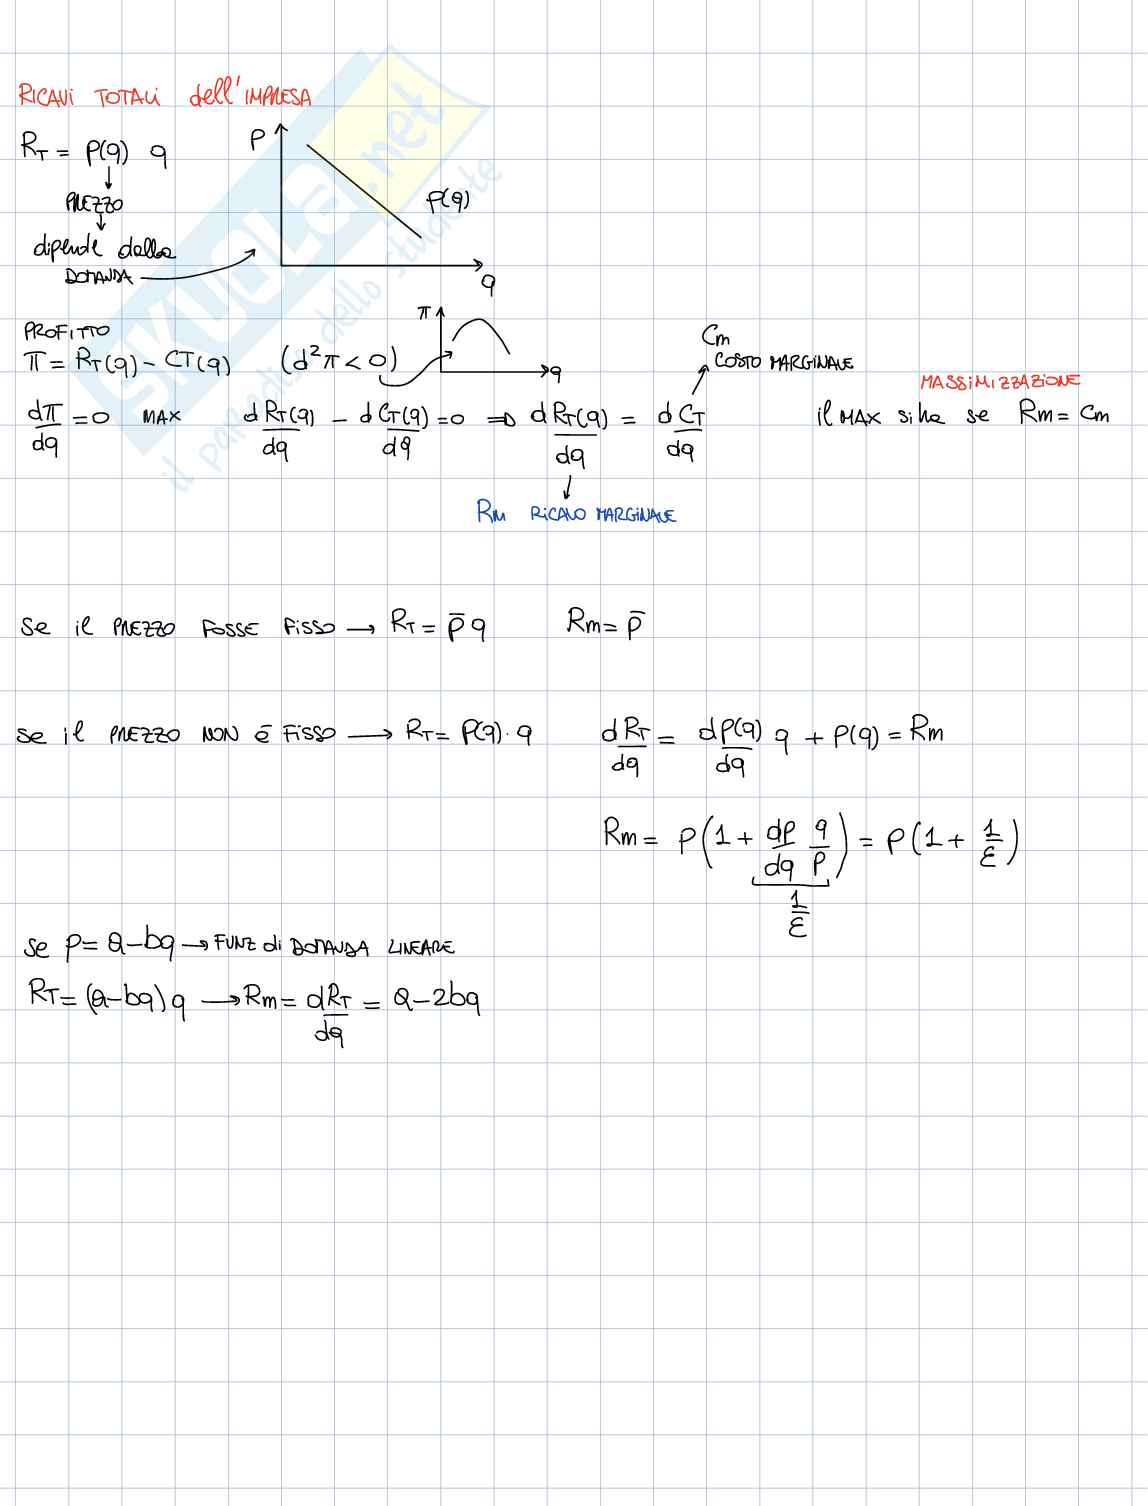 RICAVI TOTALI dell'IMPRESA
R_T = p(q) q
↓
PREZZO
↓
dipende dalla
DOMANDA →
P
p(q)
q
PROFITTO
π = R_T(q) - CT(q) (d²π < 0)
π
q
Cm
COSTO MARGINALE
dπ/dq = 0 MAX dR_T(q)/dq - dC_T(q)/dq = 0 ⇒ dR_T(q)/dq = dC_T/dq
MASSIMIZZAZIONE
il MAX si ha se Rm = Cm
Rm RICAVO MARGINALE
se il PREZZO FOSSE FISSO → R_T = p̄ q Rm = p̄
se il PREZZO NON è FISSO → R_T = P(q) · q dR_T/dq = dp(q)/dq q + P(q) = Rm
Rm = P(1 + dp/dq q/p) = P(1 + 1/ε)
1/ε
se p = a - bq → FUNZ di DOMANDA LINEARE
R_T = (a - bq) q → Rm = dR_T/dq = a - 2bq
SKUOLA.net
il paradiso dello studente